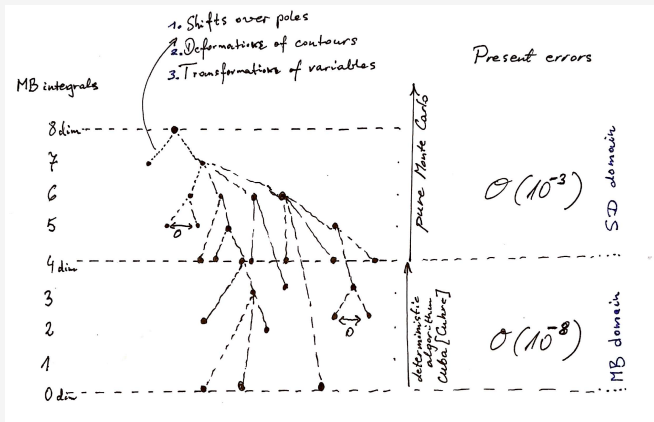 1. Shifts over poles
2. Deformations of contours
3. Transformations of variables
Present errors
MB integrals
8 dim
7
6
5
4 dim
3
2
1
0 dim
0
0
pure Monte Carlo
deterministic
algorithm
Cuba [Cuhre]
O(10⁻³)
SD domain
O(10⁻⁸)
MB domain